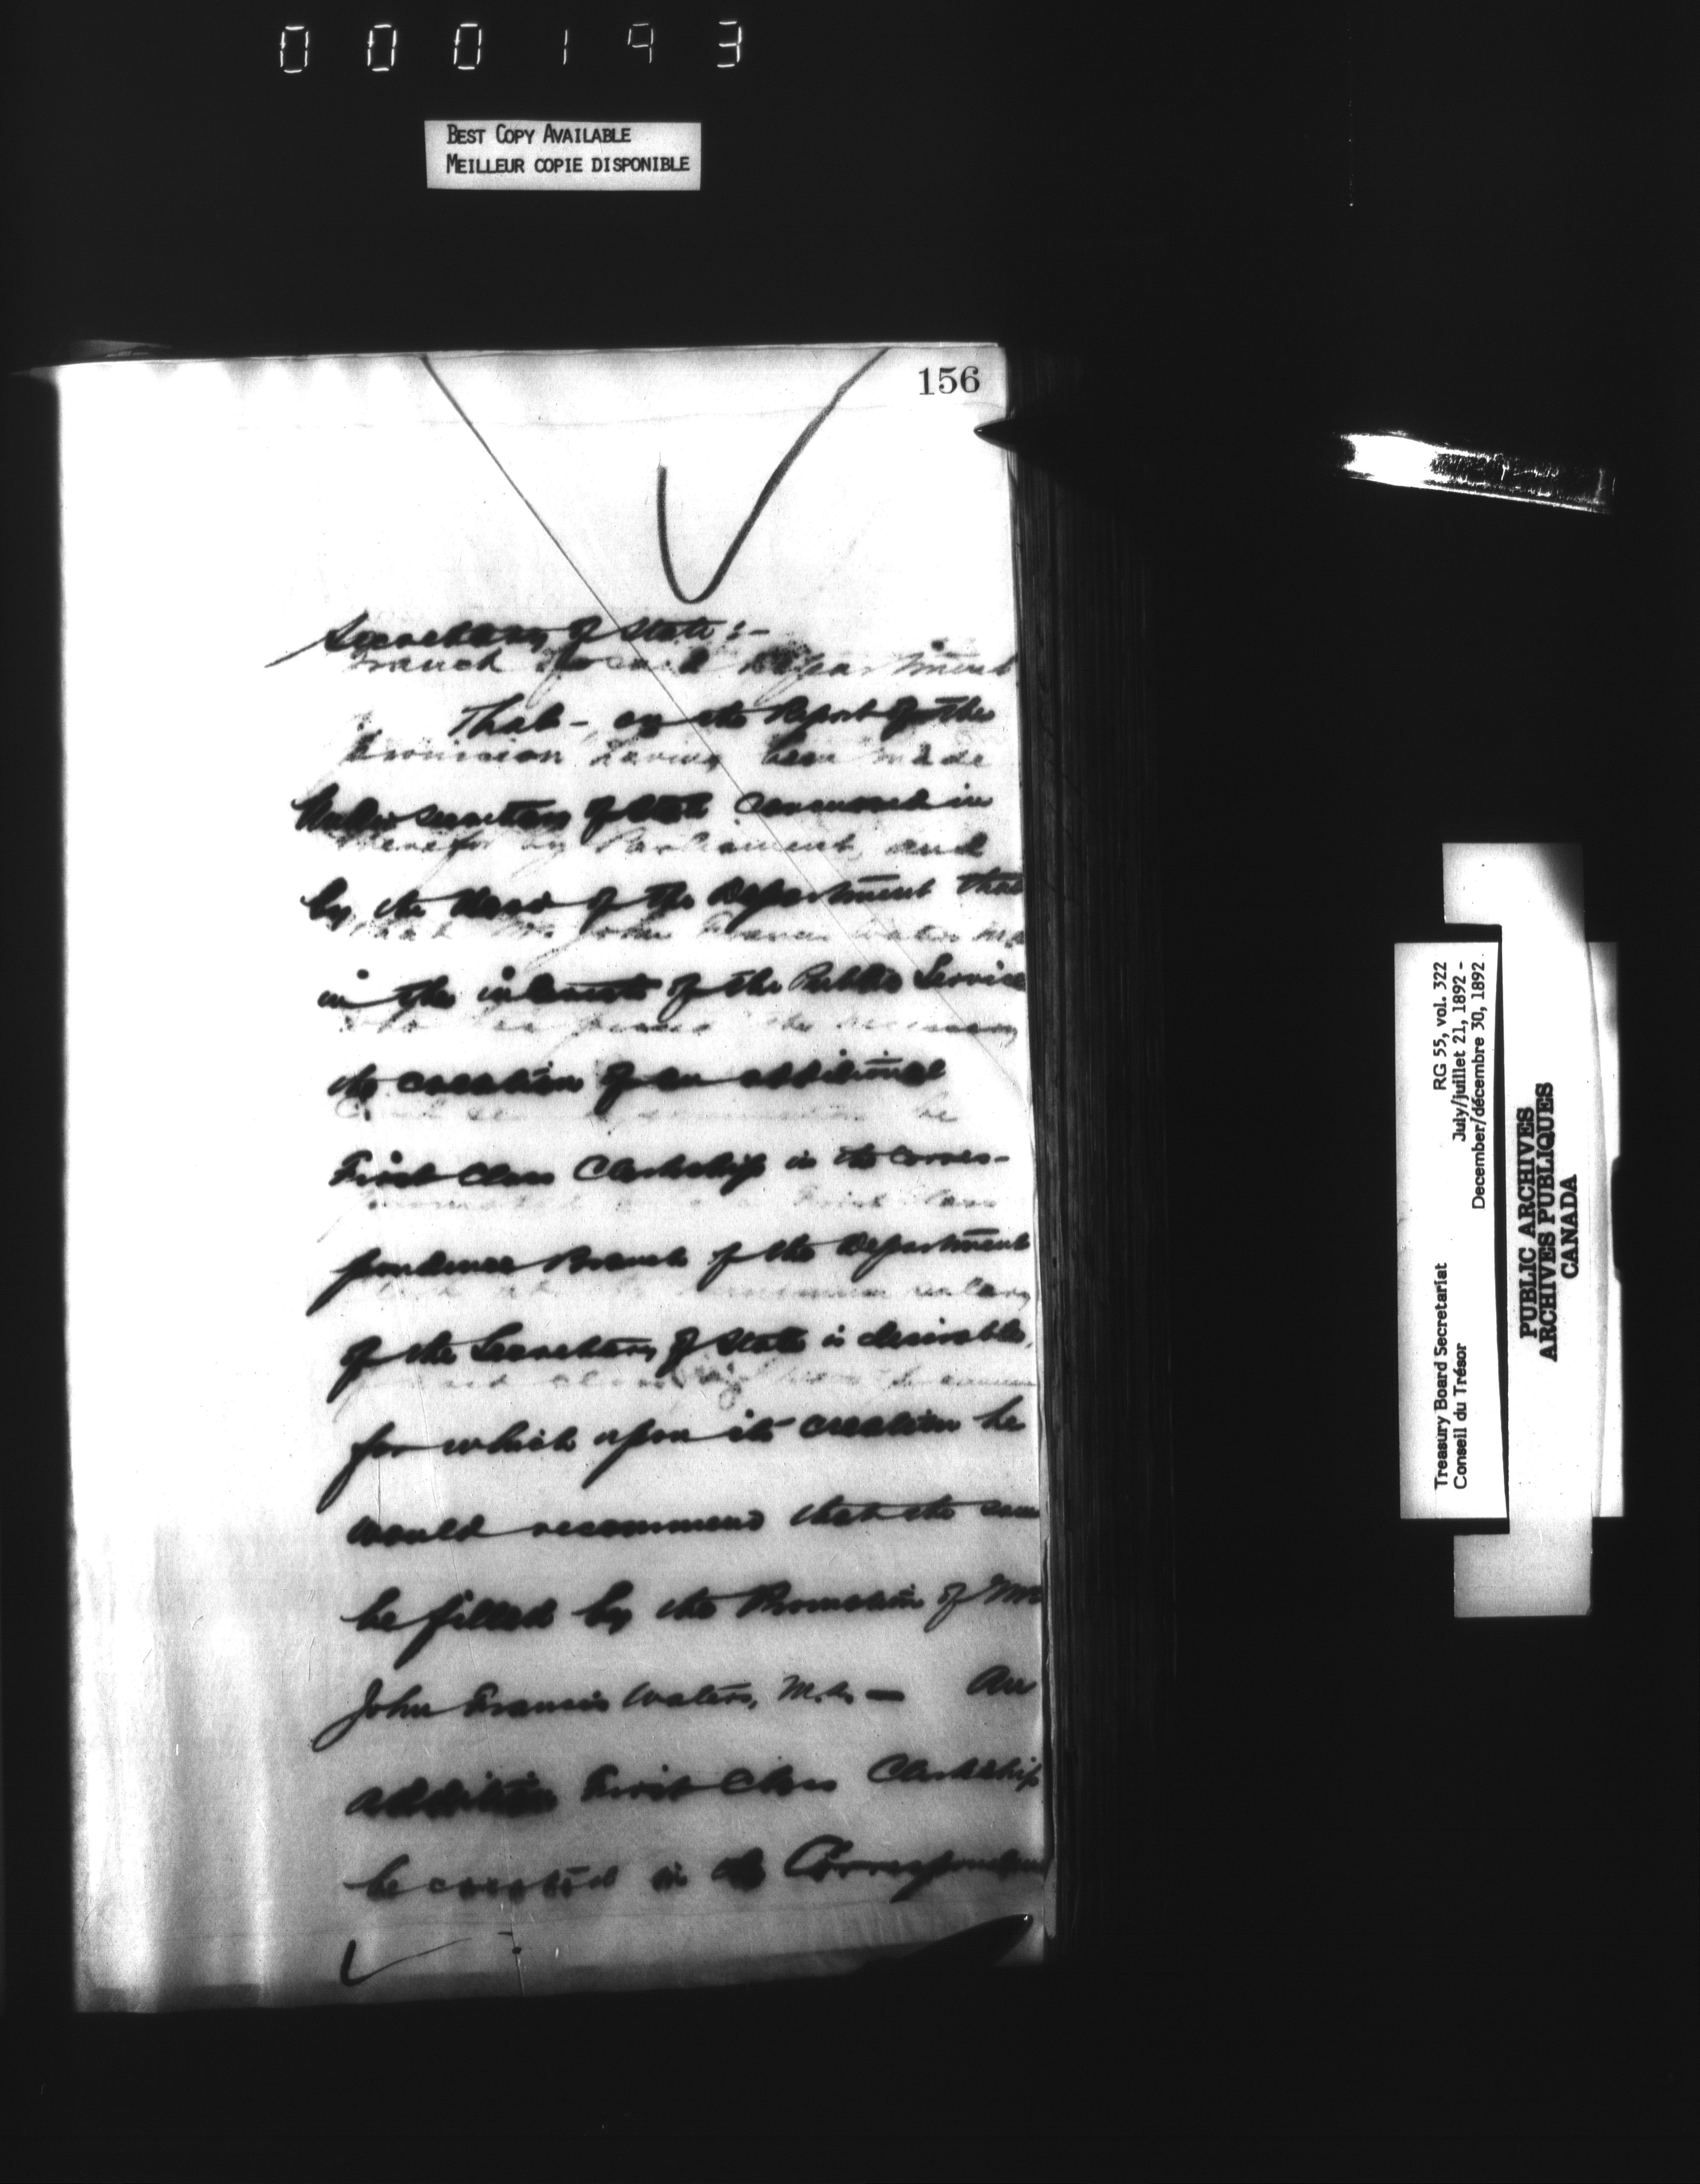 000193
BEST COPY AVAILABLE
MEILLEUR COPIE DISPONIBLE
156
Secretary of State :-
Branch of said Department
That -, on the Report of the
Provision having been made
Under Secretary of State concurred in
therefor by Parliament, and
by the Head of the Department that
that Mr. John Francis Waters M.A
in the interests of the Public Service
who has passed the necessary
the creation of an additional
be
First Class Clerkship in the Corres-
First Class
pondence Branch of the Department
minimum salary
of the Secretary of State is desirable,
for which upon its creation he
would recommend that the same
be filled by the Promotion of Mr
John Francis Waters, M.A. — An
addition First Class Clerkship
be created in the Correspondence
Treasury Board Secretariat RG 55, vol. 322
Conseil du Trésor July/juillet 21, 1892 -
December/décembre 30, 1892.
PUBLIC ARCHIVES
ARCHIVES PUBLIQUES
CANADA